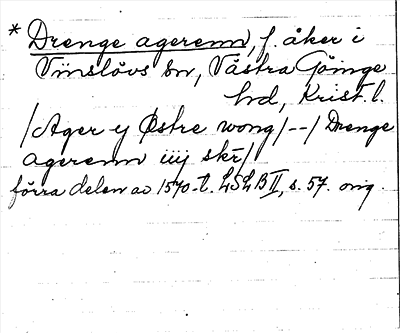 * Drenge agerenn, f. åker i
Vinslövs sn, Västra Göinge
hd, Krist. l.
/Ager y Østre wong/--/Drenge
agerenn iiij skr/
förra delen av 1570-t. LSLB II, s. 57. orig.